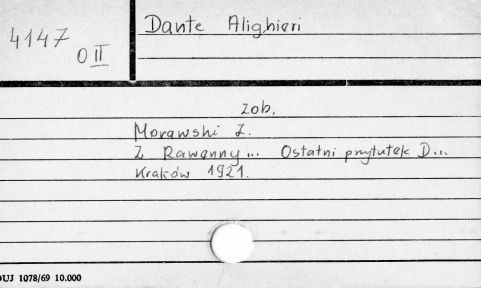 4147
O II
Dante Alighieri
zob.
Morawski Z.
Z Rawenny... Ostatni przytułek D...
Kraków 1921.
DUJ 1078/69 10.000